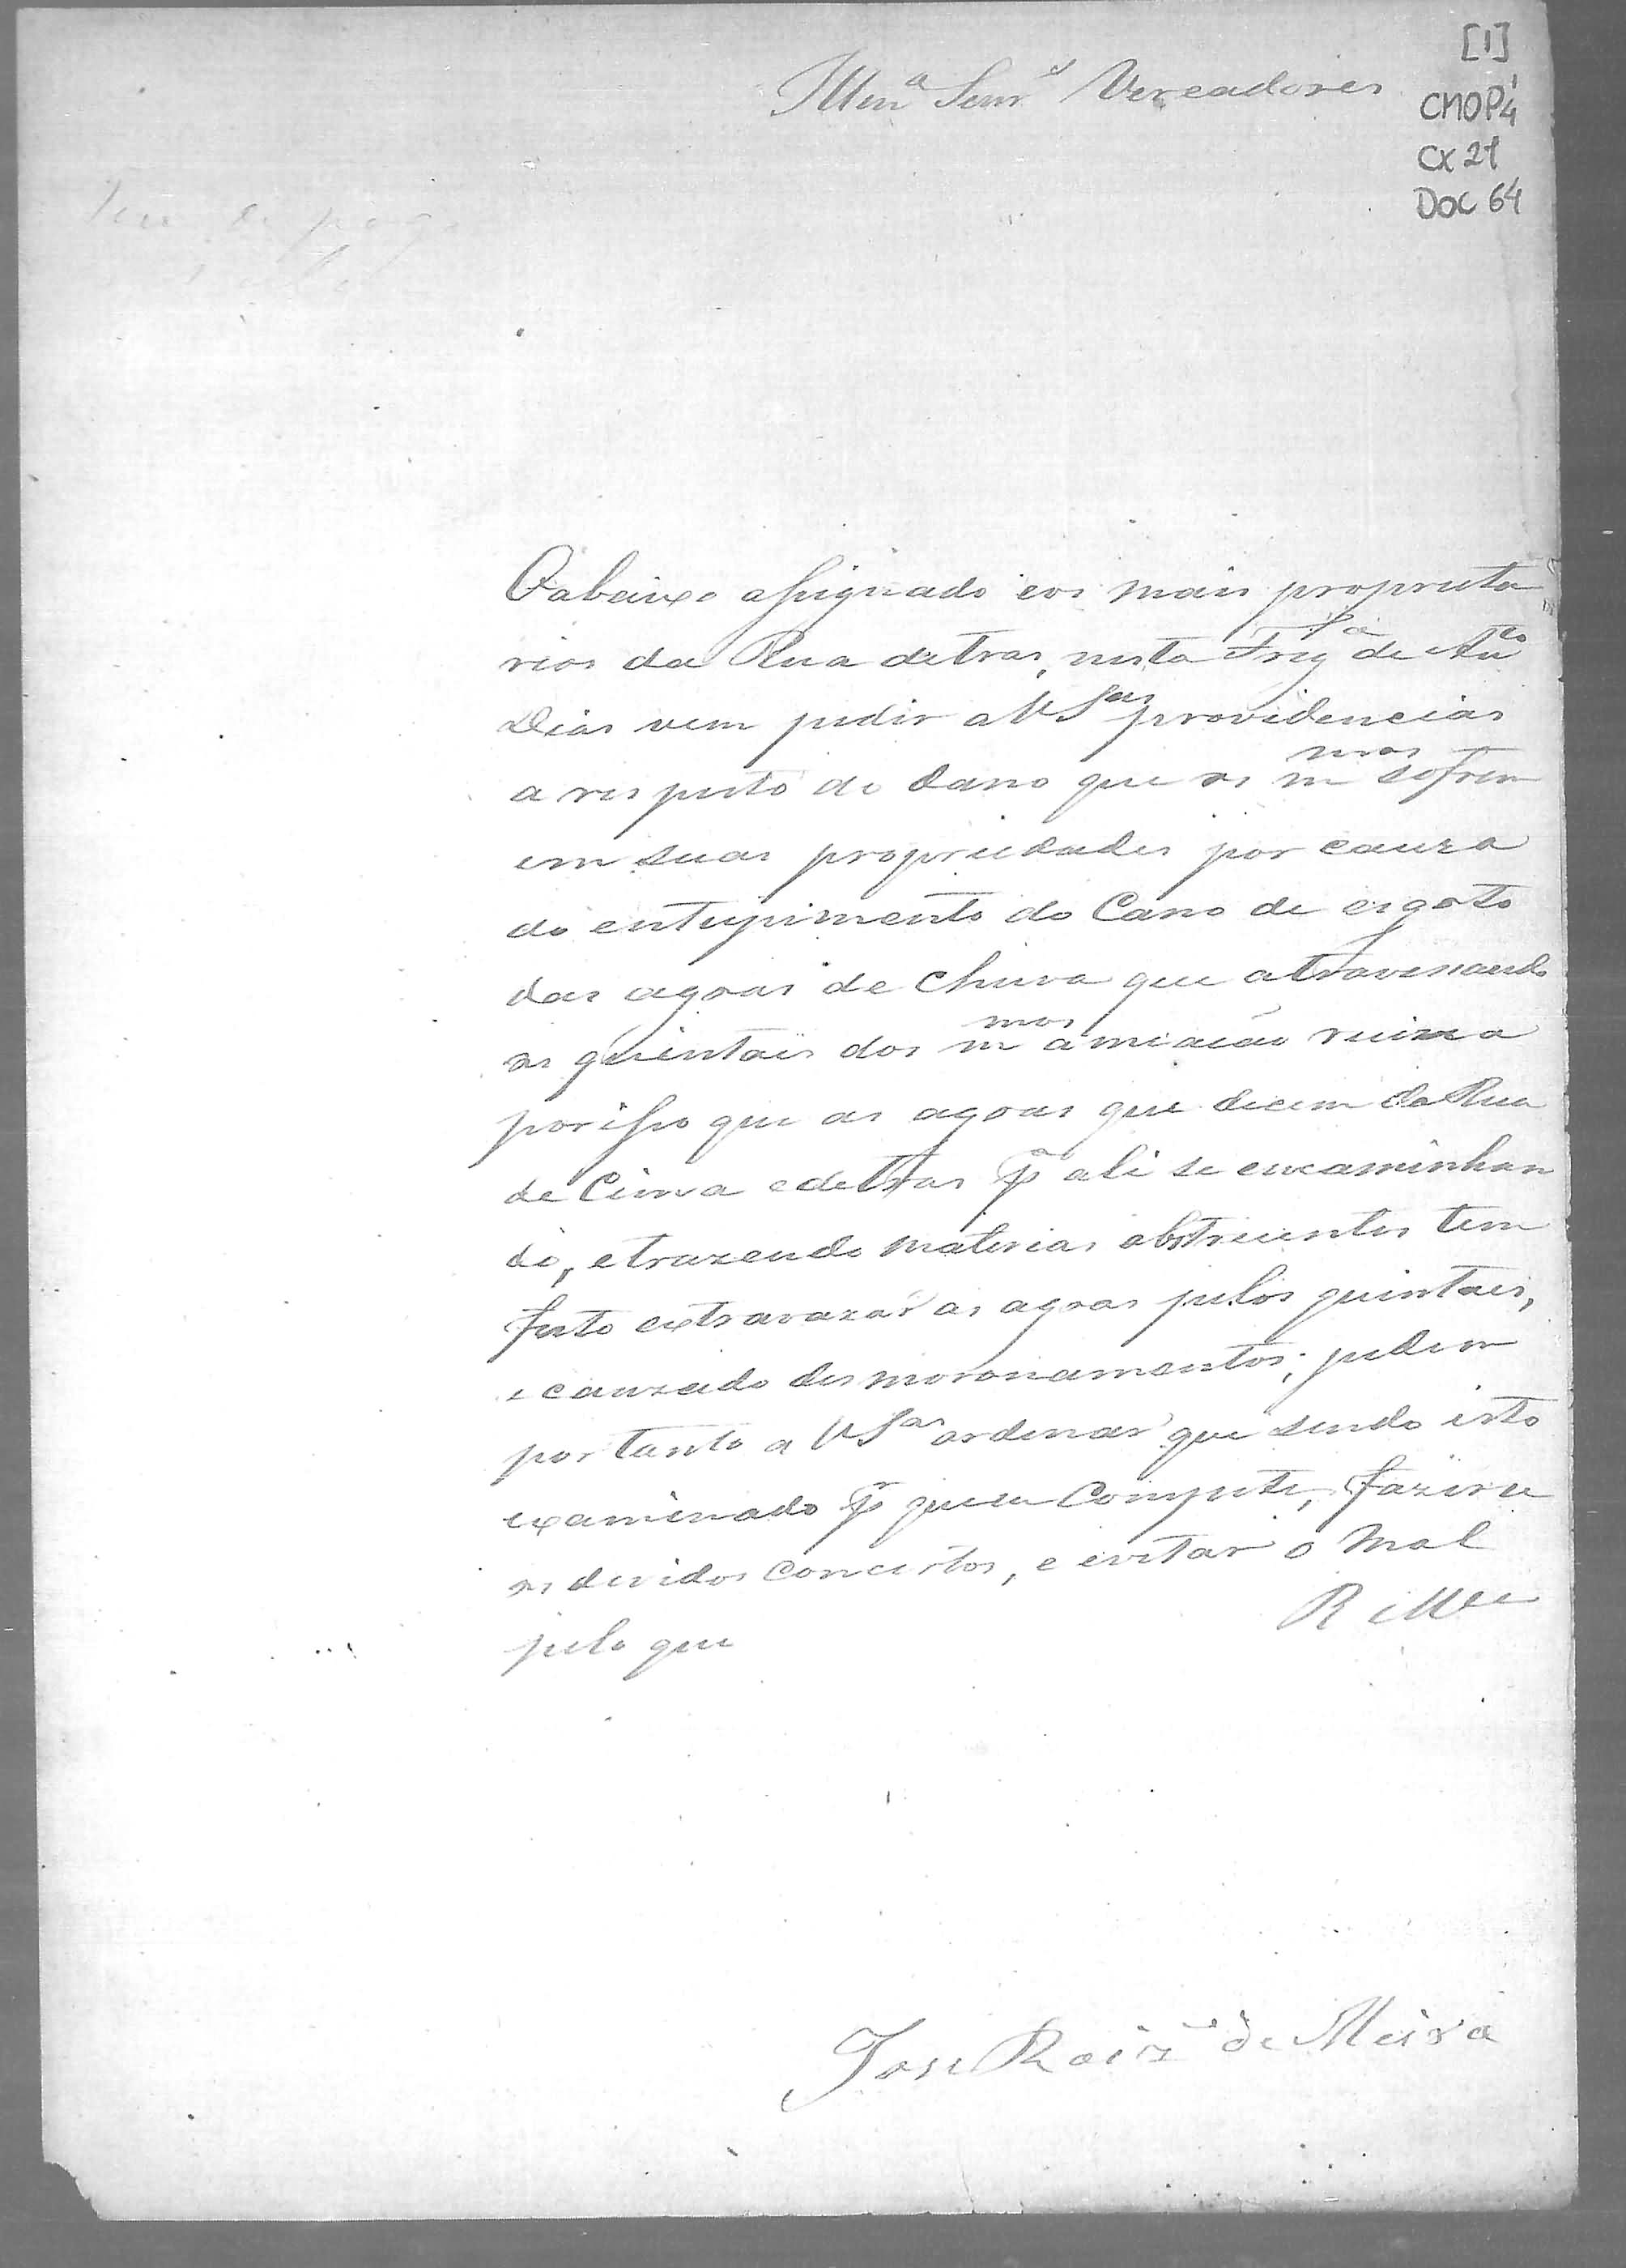 [1]
CMOP 4
CX 21
DOC 64
Illmos Senrs Vereadores
O abaixo assignado e os mais proprieta
rios da Rua detras, nesta Fregsia de Anto
Dias vem pedir a VSas providencias
a respeito do dano que os mmos sofrem
em suas propriedades por cauza
do entupimento do Cano de esgoto
das agoas de chuva que atravessando
os quintais dos mmos ameação ruina
porisso que as agoas que decem da Rua
de Cima e detras pa ali se encaminhan
do, e trazendo materias obstruentes tem
feito extravazar as agoas pelos quintaes,
e cauzado desmoronamentos; pedem
por tanto a VSas ordenar que sendo isto
examinado pr quem Compete, fazer
os devidos concertos, e evitar o mal
pelo que
R Mce
Jose Roiz de Meira